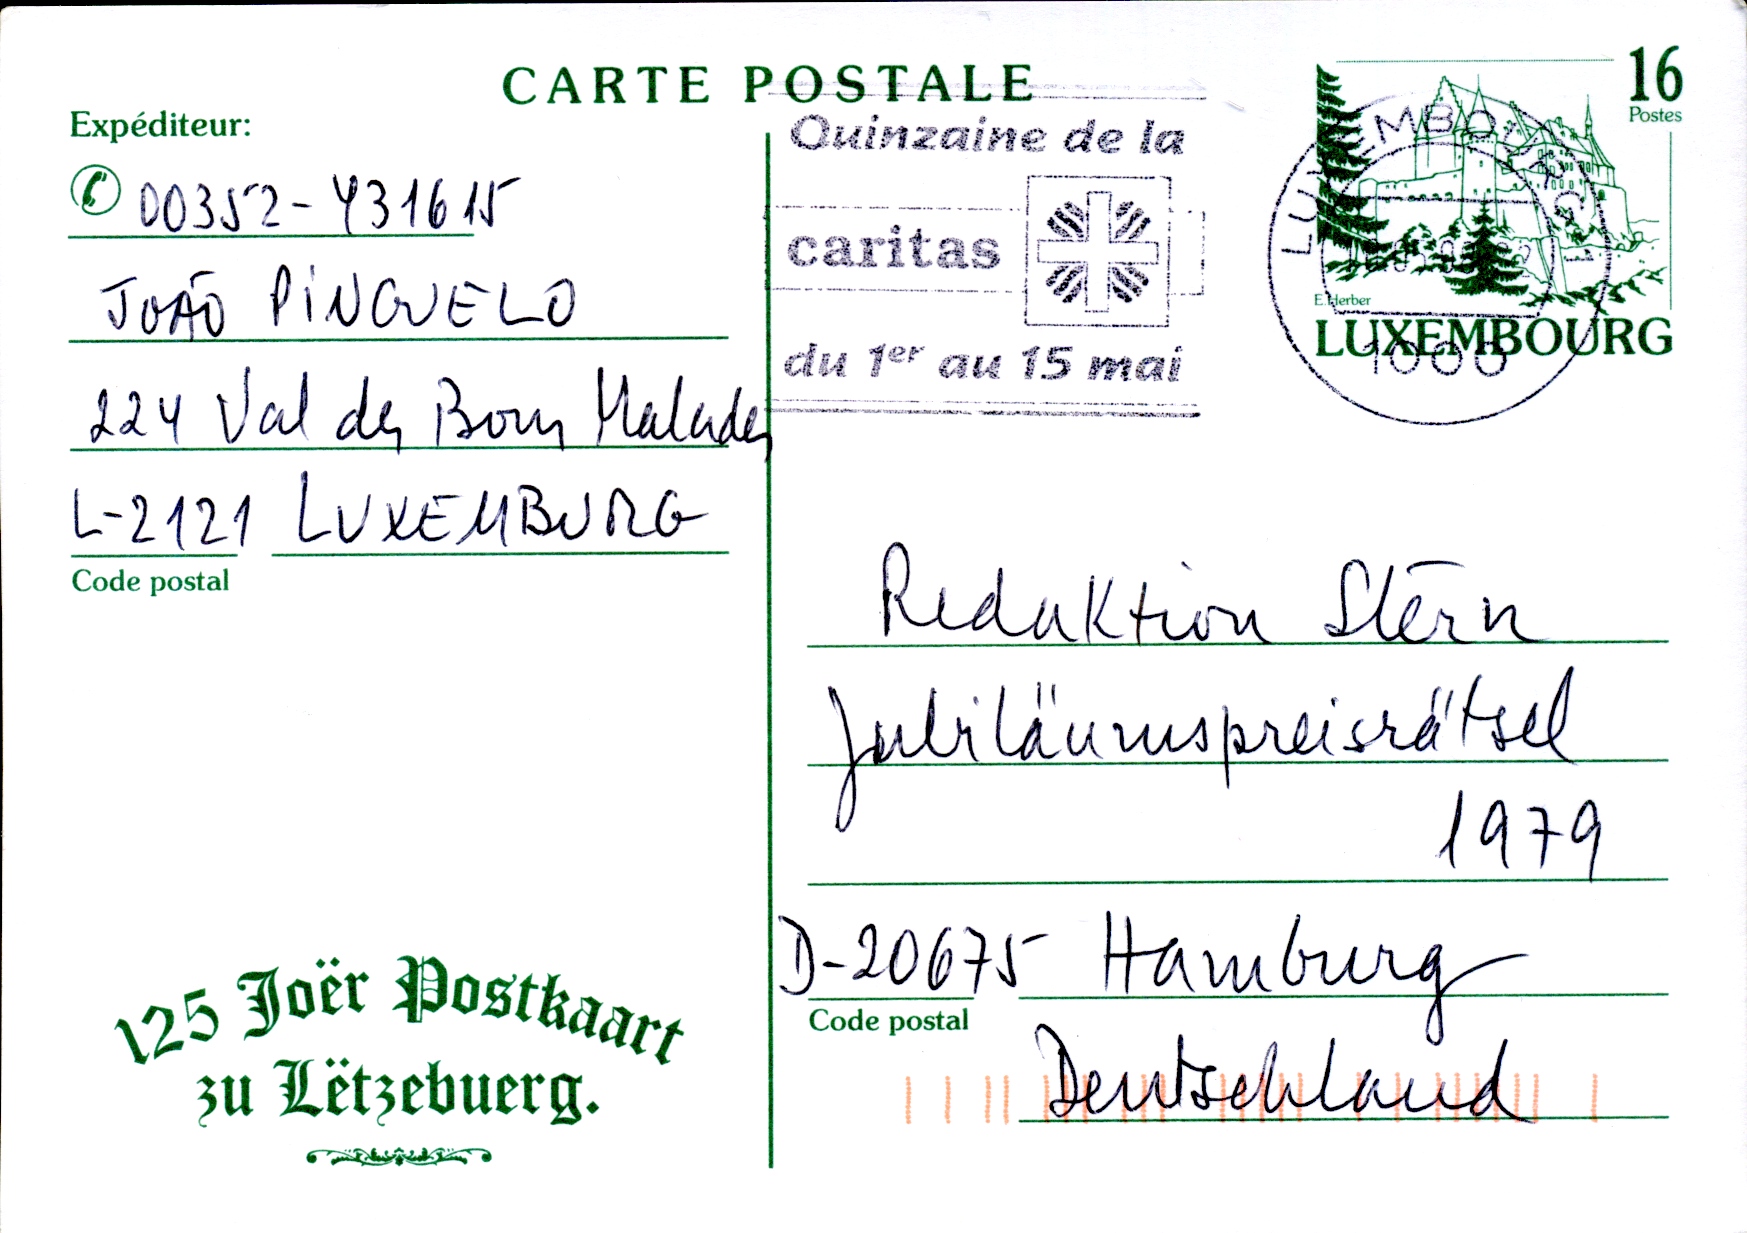 CARTE POSTALE
Expéditeur:
00352-431615
JOÃO PINGUELO
224 Val des Bons Malades
L-2121 LUXEMBURG
Code postal
125 Joër Postkaart
zu Lëtzebuerg.
Quinzaine de la
caritas
du 1er au 15 mai
16
Postes
E. Herber
LUXEMBOURG
LUXEMBOURG 1
1000
Redaktion Stern
Jubiläumspreisrätsel
1979
D-20675 Hamburg
Code postal
Deutschland